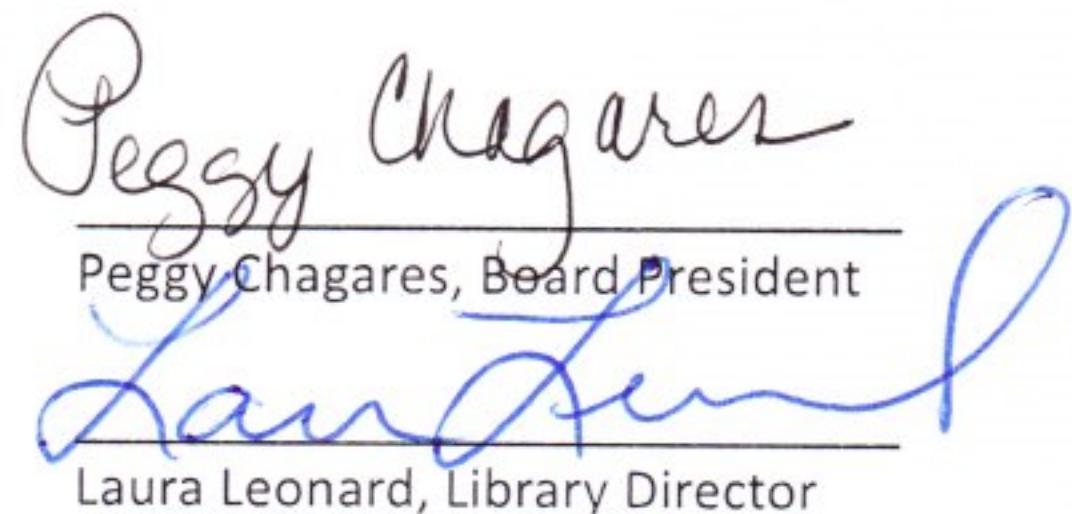 Peggy Chagares
Peggy Chagares, Board President
Laura Leonard
Laura Leonard, Library Director